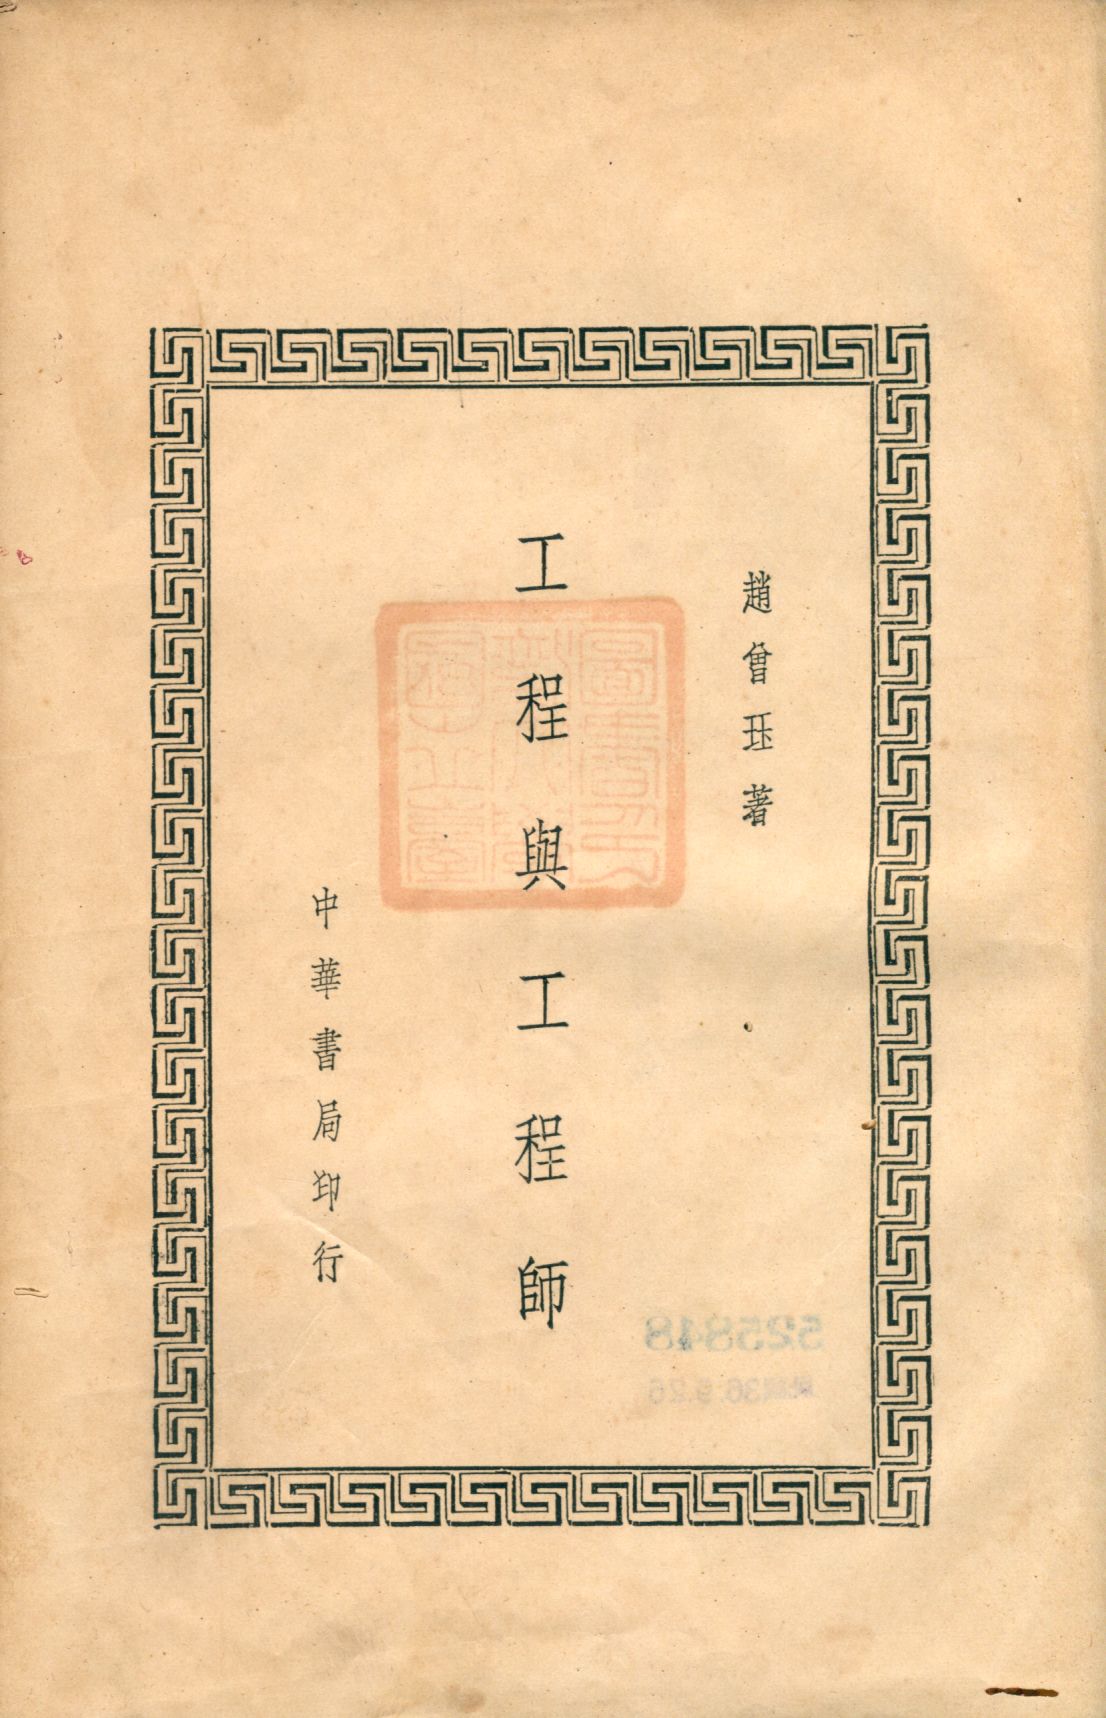 趙曾珏著
工程與工程師
中華書局印行
525848
民國36.9.26